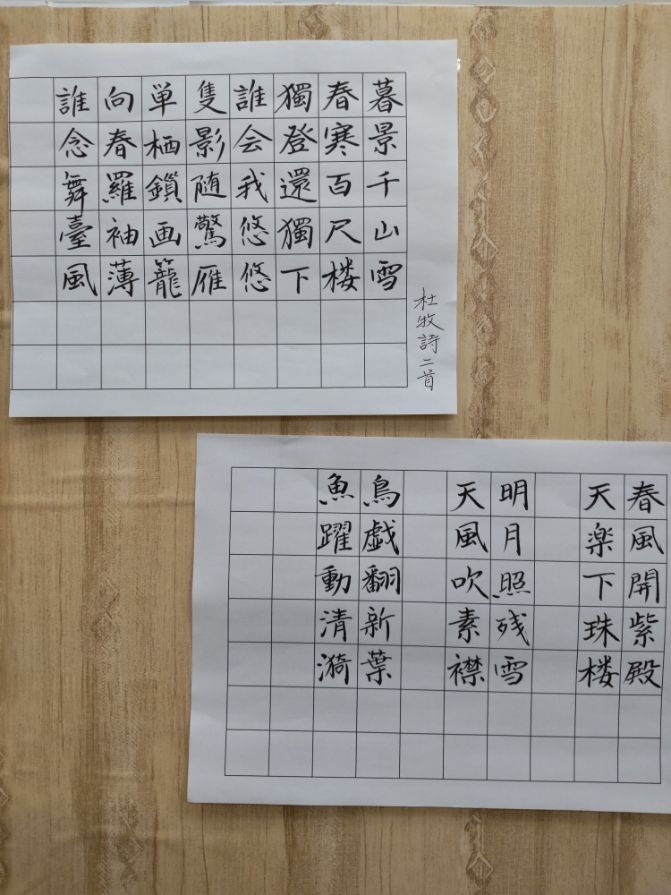 暮景千山雪
春寒百尺楼
獨登還獨下
誰会我悠悠
隻影随驚雁
単栖鎖画籠
向春羅袖薄
誰念舞臺風
杜牧詩二首
春風開紫殿
天楽下珠楼
明月照残雪
天風吹素襟
鳥戯翻新葉
魚躍動清漪